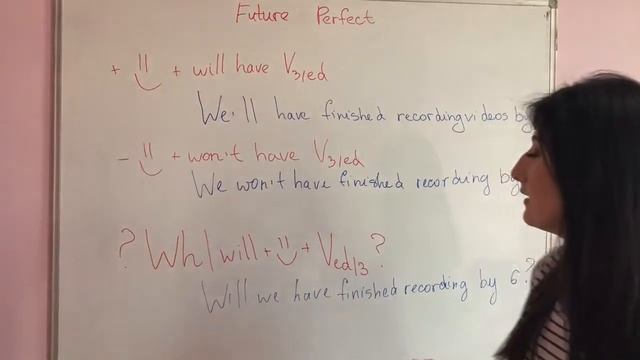 Future Perfect
+ + will have V3/ed
We'll have finished recording videos by
- + won't have V3/ed
We won't have finished recording by
? Wh / will + + Ved/3 ?
Will we have finished recording by 6?